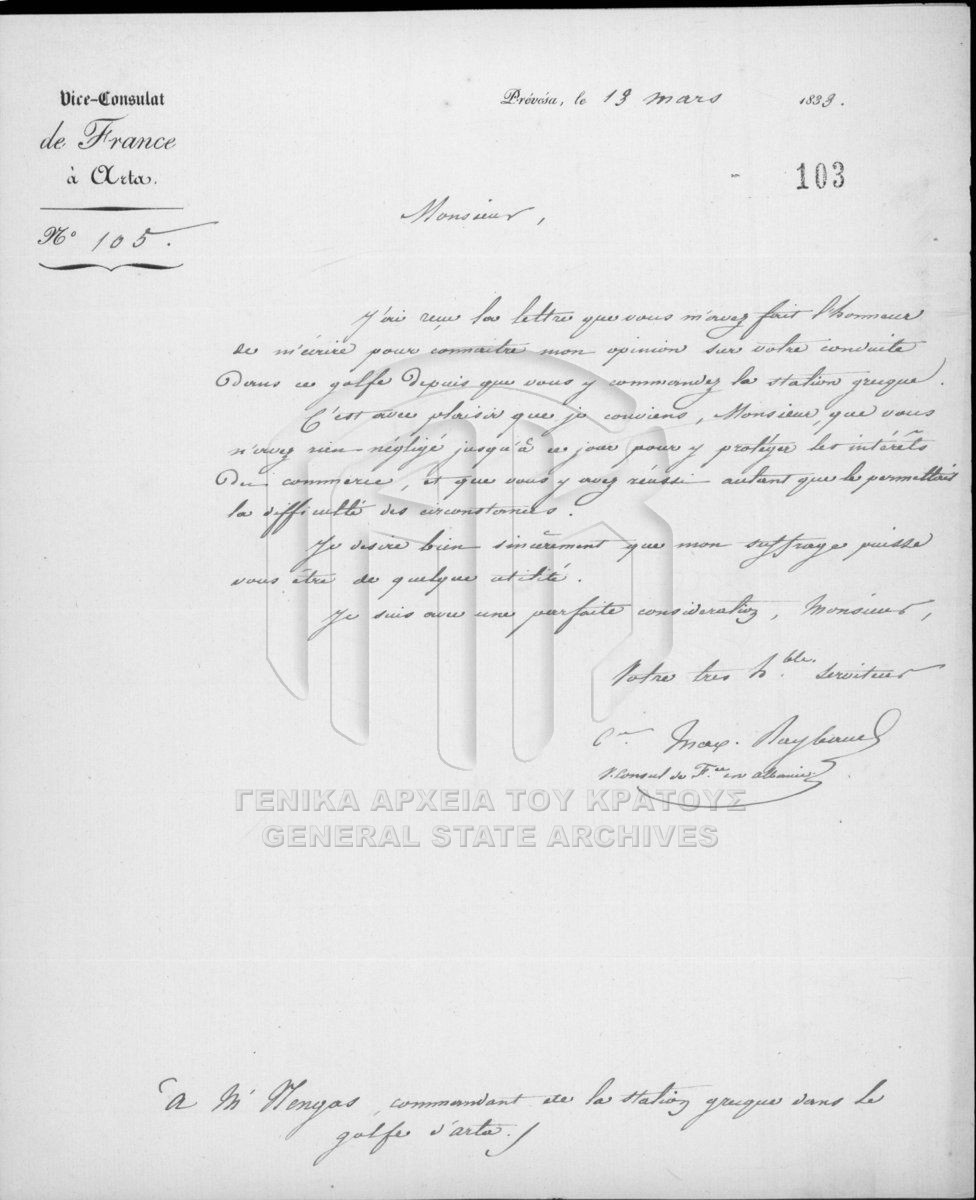 Vice-Consulat
de France
à Arta.
N° 105.
Prévésa, le 13 mars 1833.
103
Monsieur,
J'ai reçu la lettre que vous m'avez fait l'honneur
de m'écrire pour connaitre mon opinion sur votre conduite
dans ce golfe depuis que vous y commandez la station grecque.
C'est avec plaisir que je conviens, Monsieur, que vous
n'avez rien négligé jusqu'à ce jour pour y protéger les intérêts
du commerce, et que vous y avez réussi autant que le permettait
la difficulté des circonstances.
Je desire bien sincèrement que mon suffrage puisse
vous être de quelque utilité.
Je suis avec une parfaite consideration, Monsieur,
Votre tres h.ble serviteur
Max. Raybaud
V. Consul de F.ce en albanie
ΓΕΝΙΚΑ ΑΡΧΕΙΑ ΤΟΥ ΚΡΑΤΟΥΣ
GENERAL STATE ARCHIVES
A Mr Nengas, commandant de la station grecque dans le
golfe d'arta.